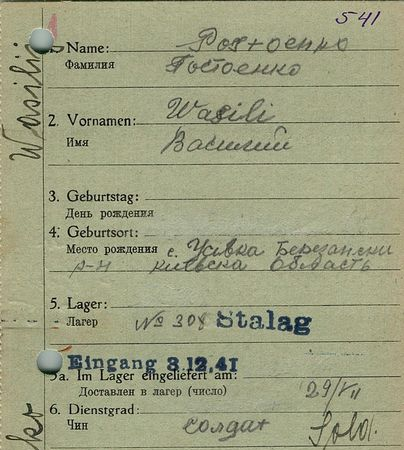 541
1. Name: Ростоенко
Фамилия Постоенко
2. Vornamen: Wasili
Имя Василий
3. Geburtstag:
День рождения
4. Geburtsort:
Место рождения с. Усівка Березански
р-н київска область
5. Lager:
Лагер № 308 Stalag
Eingang 8.12.41
5a. Im Lager eingeliefert am:
Доставлен в лагер (число) 29/VII
6. Dienstgrad:
Чин солдат Sold.
Wasili
ko